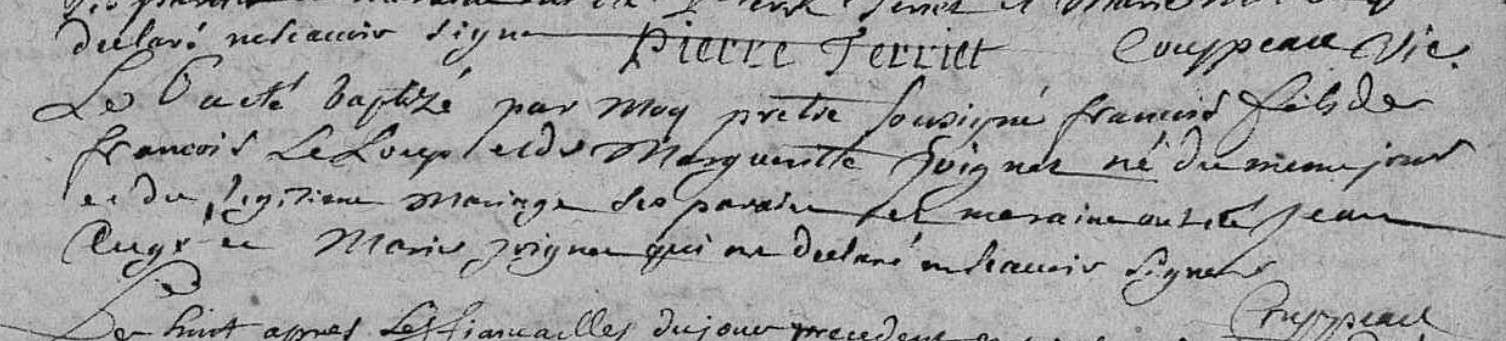 parain et maraine ont été Pierre Perriet et Marie
declaré ne scavoir signer Pierre Terriet Couppeau Vic.
Le 6 a eté baptizé par Moy pretre sousigné francois fils de
francois Le Loup et de Marguerite Joignet né du meme jour
et du legitime Mariage ses parain et maraine ont eté jean
Augé et Marie joignet qui ont declaré ne scavoir signer
Couppeau
Le huit apres Les fiancailles du jour precedent